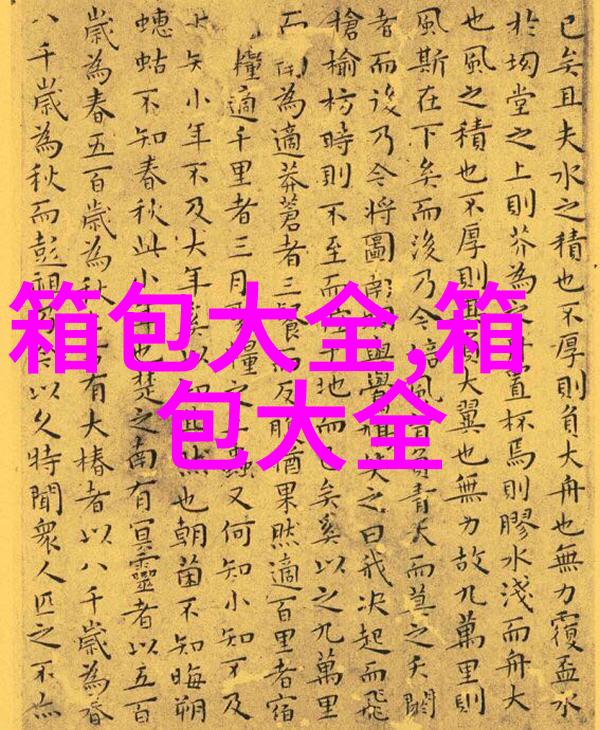 箱包大全,箱
包大全
已矣且夫水之積也不厚則負大舟也無力覆盃水
於坳堂之上則芥為之置杯焉則膠水淺而舟大
也風之積也不厚則負大翼也無力故九萬里則
風斯在下矣而後乃今培風背負青天而莫之夭閼
者而後乃今將圖南與鷽笑之曰我決起而飛
槍榆枋時則不至而地而已矣奚以之九萬里
而為適莽蒼者三飡而反腹猶果然適百里者宿
糧適千里者三月糧之二蟲又何知小知不及
小年不及大年奚以知其然也朝菌不知晦朔
蟪蛄不知春秋此小年也楚之南有冥靈者以五百
歲為春五百歲為秋古有大椿者以八千歲為春
八千歲為秋而彭祖乃以久特聞衆人匹之不亦